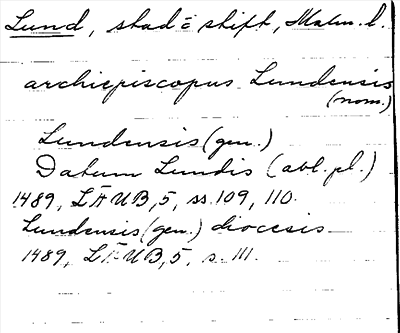 Lund, stad o. stift, Malm. l.
archiepiscopus Lundensis
(nom.)
Lundensis (gen.)
Datum Lundis (abl. pl.)
1489, LÄUB, 5, ss. 109, 110.
Lundensis (gen.) diocesis
1489, LÄUB, 5, s. 111.